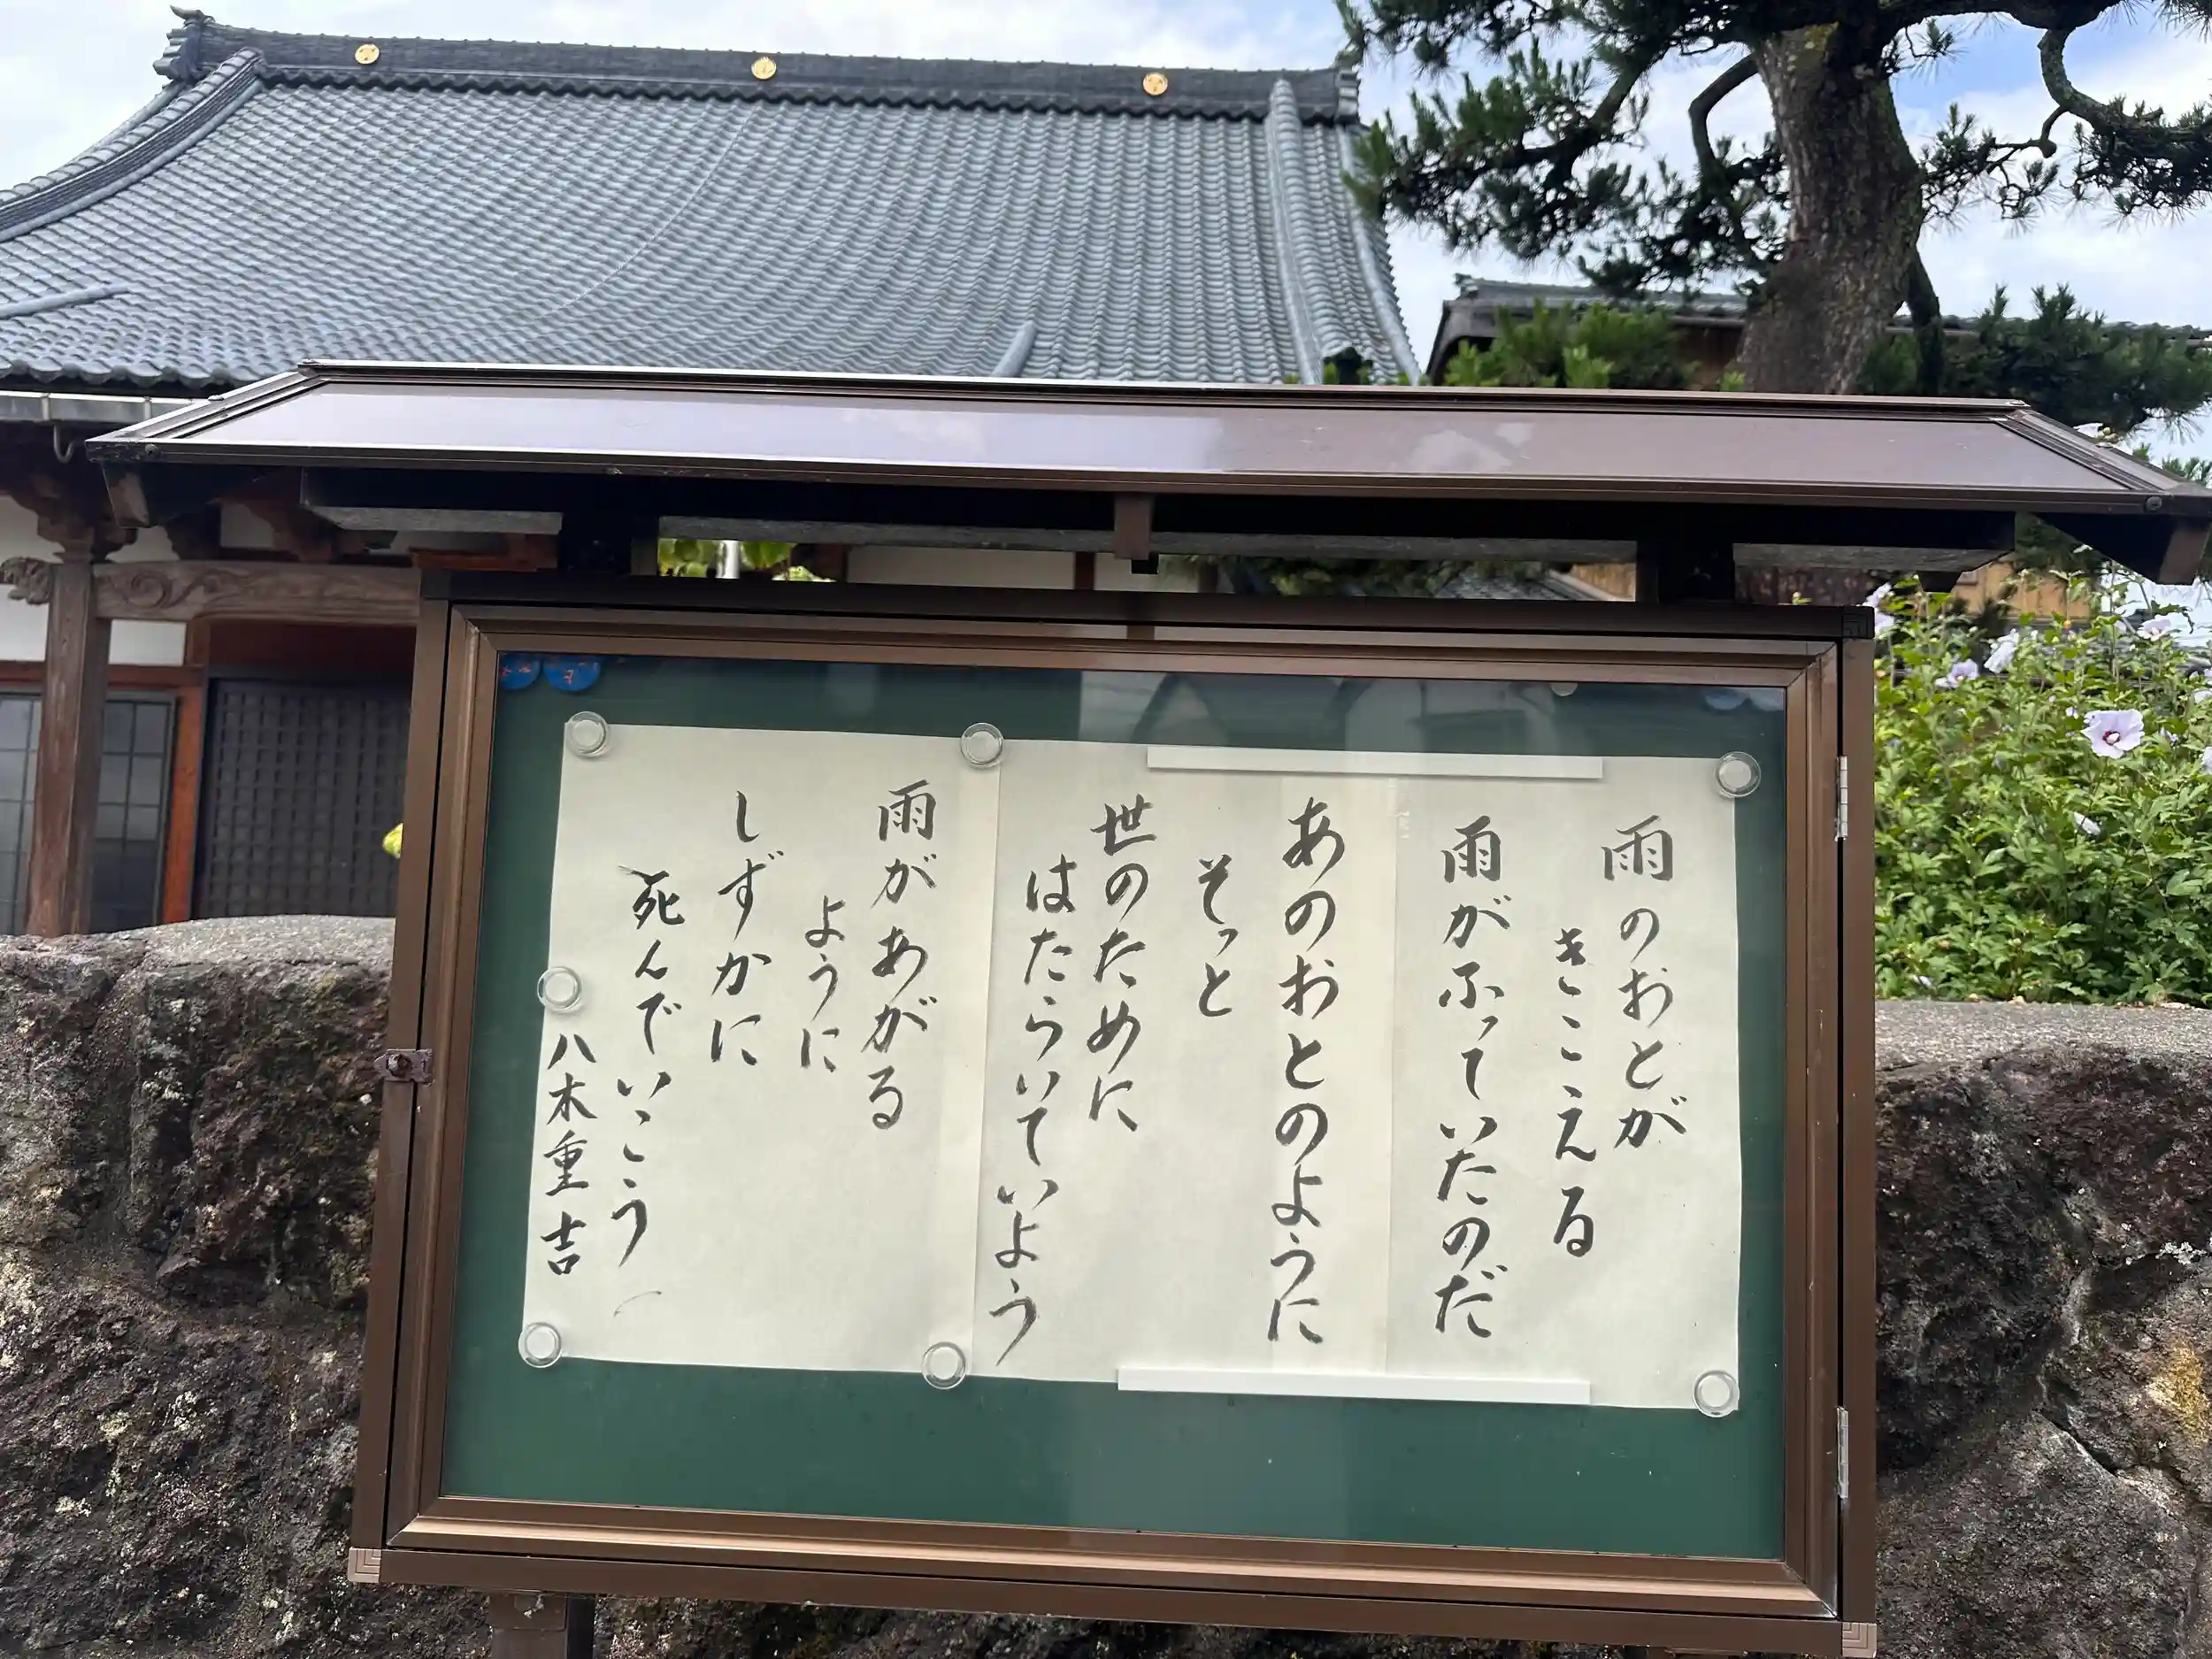 雨のおとが
きこえる
雨がふっていたのだ
あのおとのように
そっと
世のために
はたらいていよう
雨があがる
ように
しずかに
死んでいこう
八木重吉